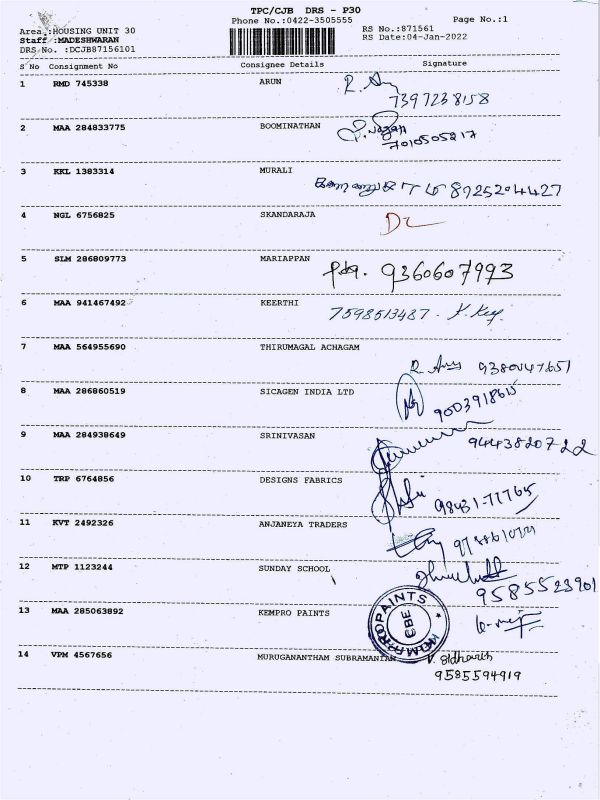 TPC/CJB DRS - P30
Phone No.:0422-3505555
Page No.:1
Area :HOUSING UNIT 30
Staff :MADESHWARAN
DRS No. :DCJB87156101
RS No.:871561
RS Date:04-Jan-2022
S No Consignment No Consignee Details Signature
1 RMD 745338 ARUN
7397238158
2 MAA 284833775 BOOMINATHAN
7010505217
3 KKL 1383314 MURALI
8925204427
4 NGL 6756825 SKANDARAJA
5 SLM 286809773 MARIAPPAN
9360607993
6 MAA 941467492 KEERTHI
7598513487.
7 MAA 564955690 THIRUMAGAL ACHAGAM
8 MAA 286860519 SICAGEN INDIA LTD
9003918615
9 MAA 284938649 SRINIVASAN
9443820722
10 TRP 6764856 DESIGNS FABRICS
98431-77765
11 KVT 2492326 ANJANEYA TRADERS
12 MTP 1123244 SUNDAY SCHOOL
9585523901
13 MAA 285063892 KEMPRO PAINTS
PAINTS
CBE
14 VPM 4567656 MURUGANANTHAM SUBRAMANIAN
V. Sidharth
9585594919